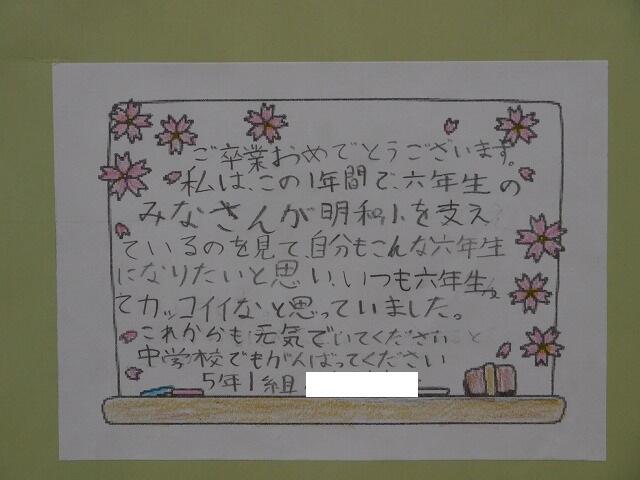 ご卒業おめでとうございます。
私は、この1年間で、六年生の
みなさんが明和小を支え
ているのを見て、自分もこんな六年生
になりたいと思い、いつも六年生って
カッコイイなと思っていました。
これからも元気でいてください
中学校でもがんばってください
5年1組